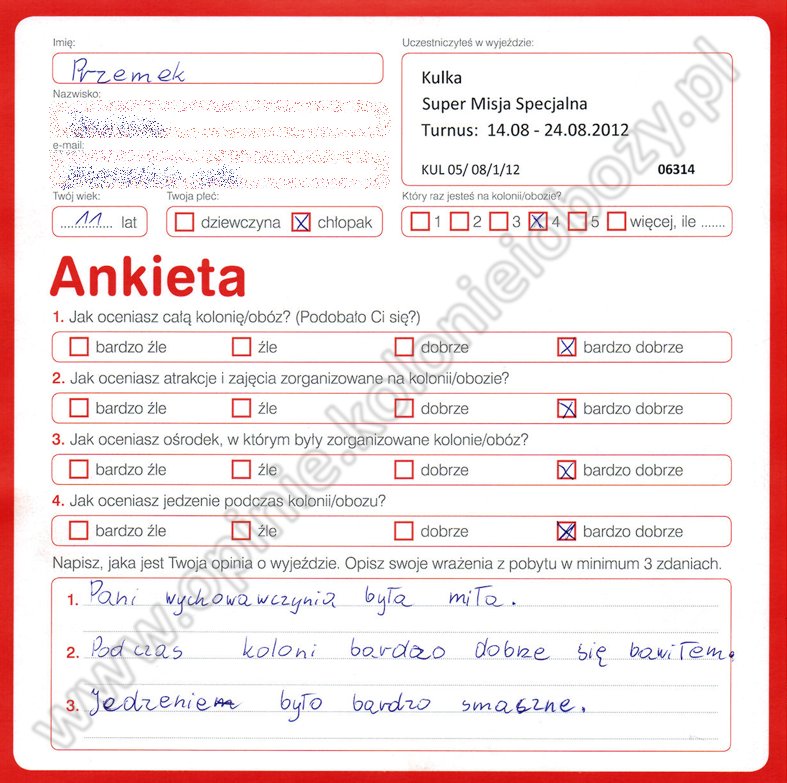 Imię:
Uczestniczyłeś w wyjeździe:
Przemek
Kulka
Super Misja Specjalna
Turnus: 14.08 - 24.08.2012
KUL 05/ 08/1/12 06314
Nazwisko:
e-mail:
Twój wiek: Twoja płeć: Który raz jesteś na kolonii/obozie?
11 lat dziewczyna chłopak 1 2 3 4 5 więcej, ile .......
Ankieta
1. Jak oceniasz całą kolonię/obóz? (Podobało Ci się?)
bardzo źle źle dobrze bardzo dobrze
2. Jak oceniasz atrakcje i zajęcia zorganizowane na kolonii/obozie?
bardzo źle źle dobrze bardzo dobrze
3. Jak oceniasz ośrodek, w którym były zorganizowane kolonie/obóz?
bardzo źle źle dobrze bardzo dobrze
4. Jak oceniasz jedzenie podczas kolonii/obozu?
bardzo źle źle dobrze bardzo dobrze
Napisz, jaka jest Twoja opinia o wyjeździe. Opisz swoje wrażenia z pobytu w minimum 3 zdaniach.
1. Pani wychowawczynia była miła.
2. Podczas koloni bardzo dobrze się bawiłem.
3. Jedzenie było bardzo smaczne.
www.opinie.kolonieiobozy.pl